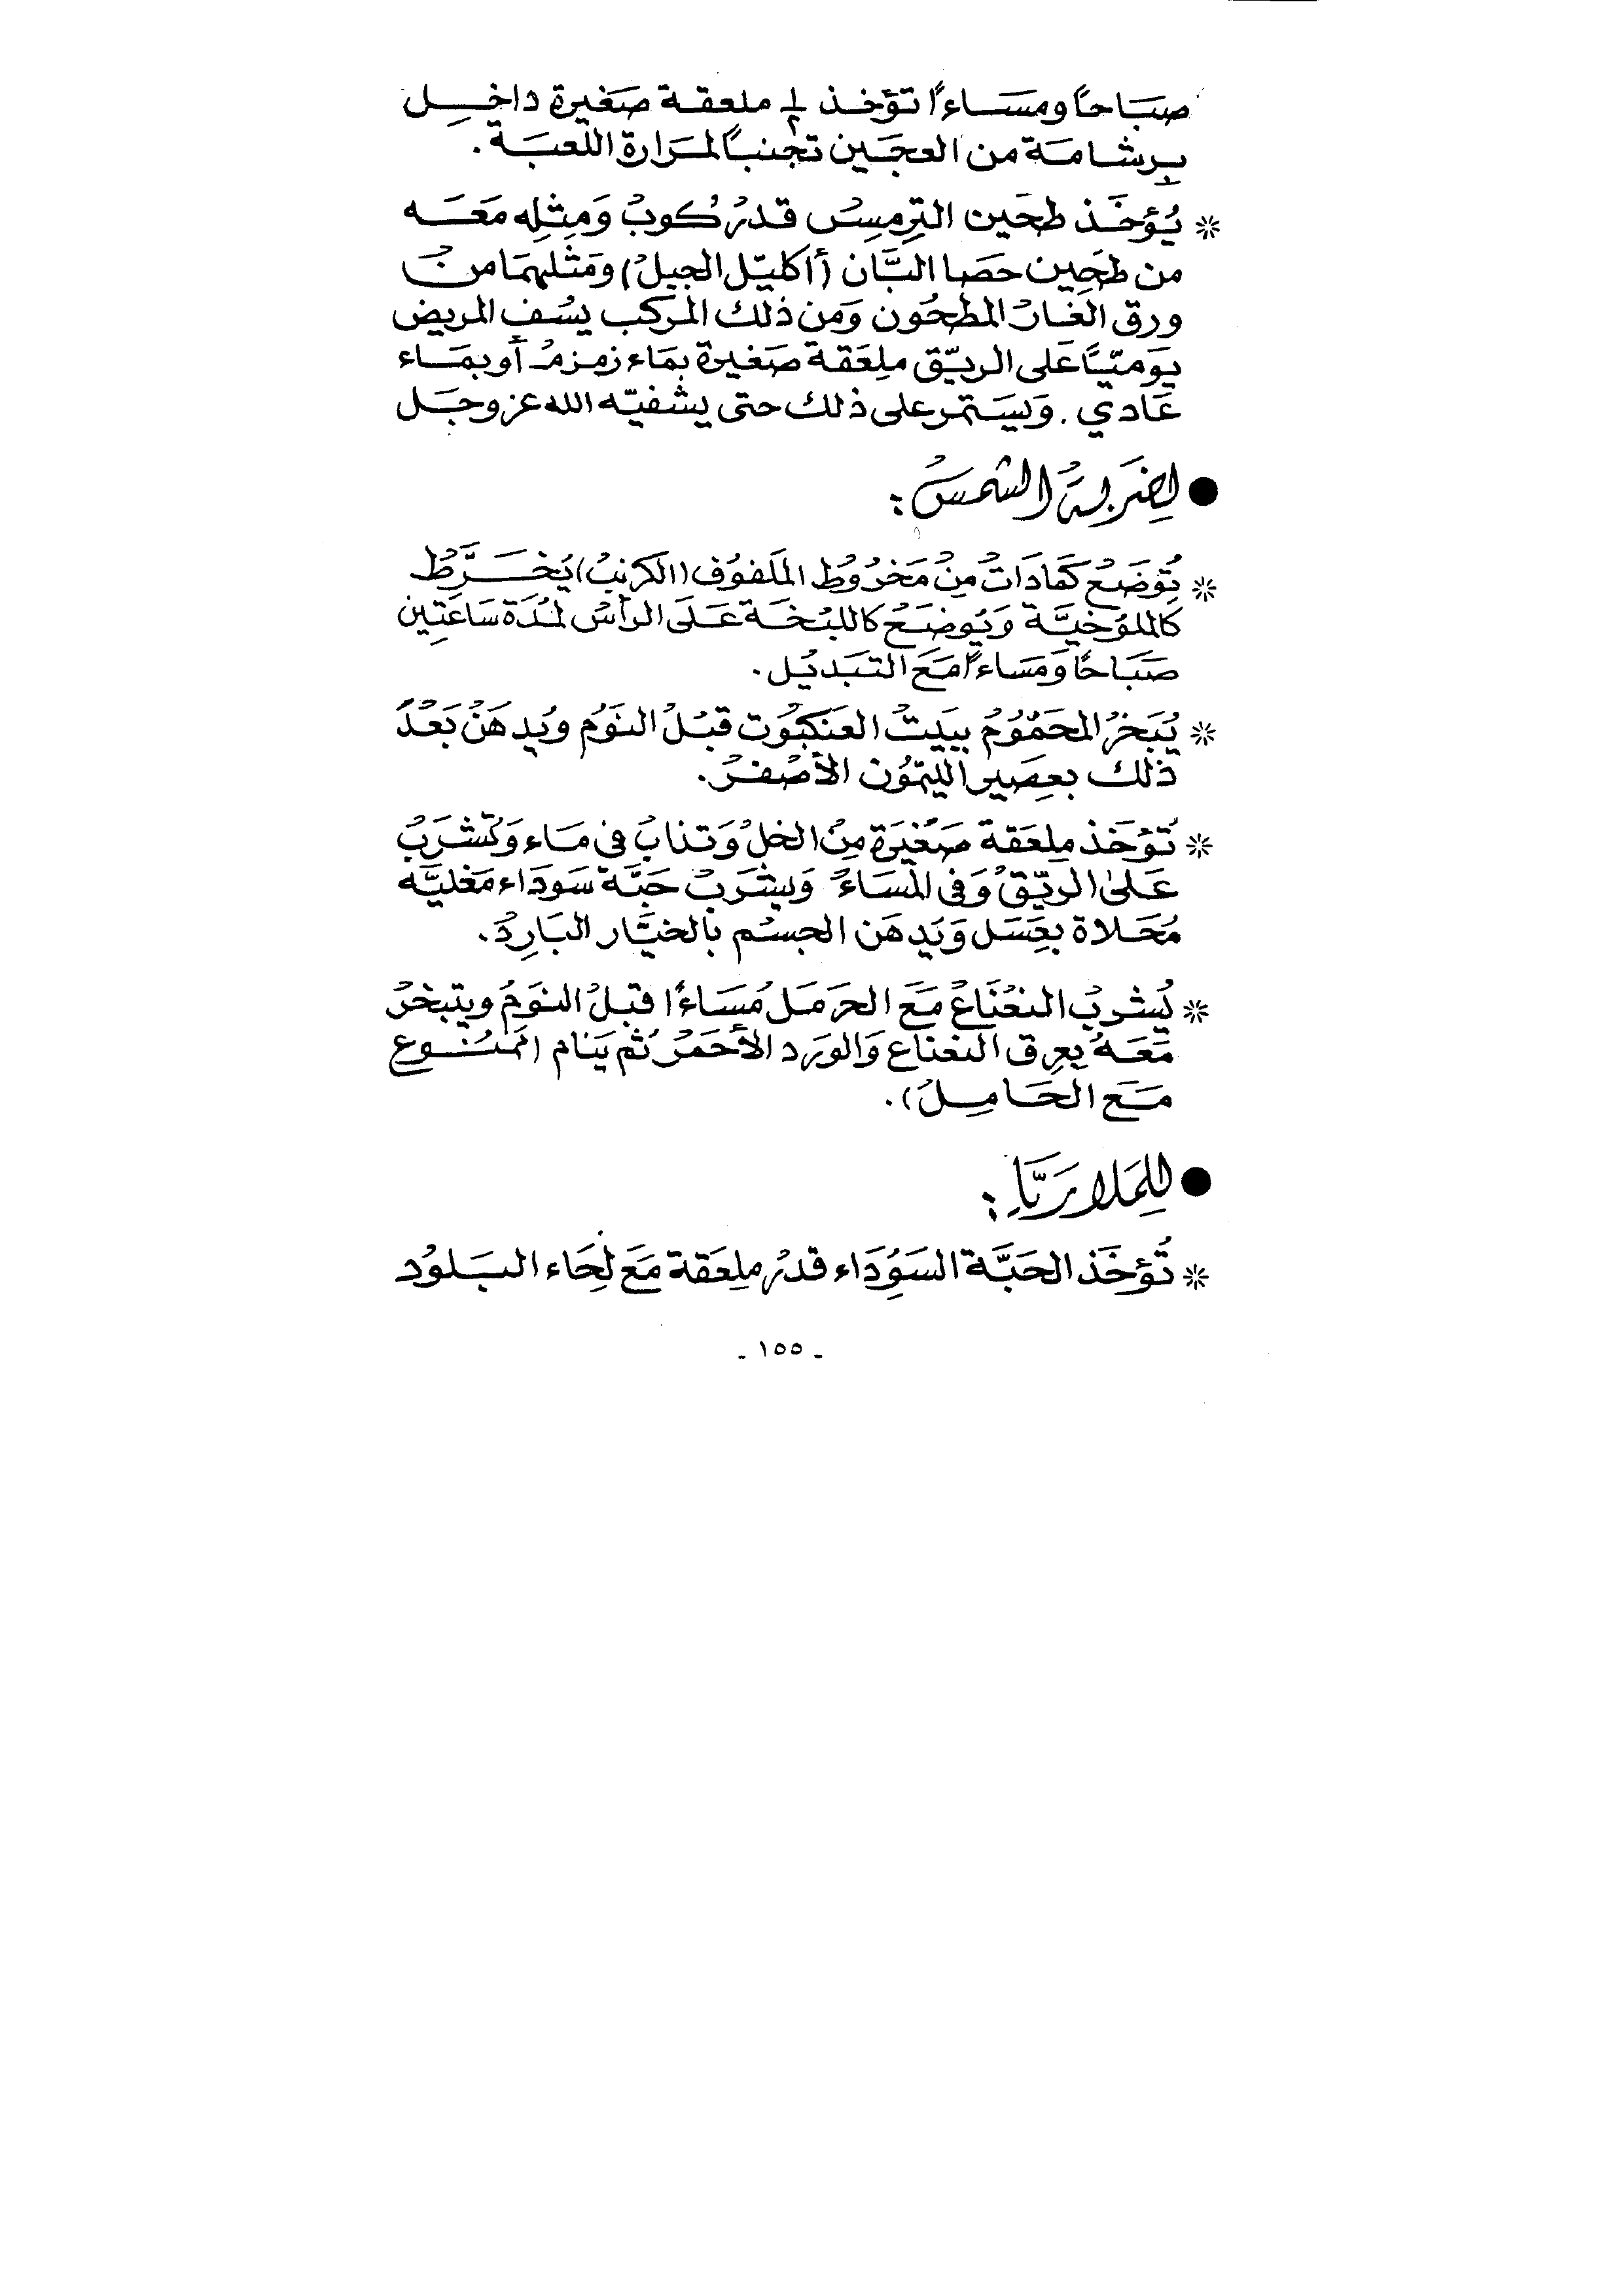 صبَاحاً ومسَاءاً تؤخذ ١/٢ ملعقة صغيرة داخِل
برشامَة من العجَين تجنباً لمرَارة اللعبَة .
* يُؤخَذ طحَين الترمسْ قدرْ كوبْ وَمثله مَعَه
من طحَين حصَا البَّان (أكليّل الجبلْ) وَمثلهمَا منْ
ورق الغَارْ المطحُون وَمن ذلك المركب يسُف المريض
يَوميّاً عَلى الريّق ملعَقة صَغيرة بمَاء زمزمْ أو بمَاء
عَادي . وَيسَتمر على ذلك حتى يشفيّه الله عز وجَل
● لضَربةْ الشمسْ :
* تُوضَعْ كمَادَاتْ منْ مَخرُوطْ الملَفوُف (الكرنبْ) يَخَرَّطْ
كالملوُخيَّة وَيوُضَعْ كاللبُخَة عَلَى الرأسْ لمُدَة سَاعَتين
صَبَاحاً ومَسَاءاً مَعَ التبَديُل .
* يُبَخرْ المحَمُومْ ببَيتْ العَنكبوُت قبُلْ النوَمْ ويُدهَنْ بَعْدَ
ذلك بعصَير الليمُون الأصْفرْ .
* تُؤخَذ ملعَقة صَغيَرة منْ الخلْ وَتذابْ فى مَاء وَتشرَبْ
عَلىٰ الريّقْ وَفى المسَاءْ وَيشرَبْ حَبَّة سَودَاء مَغليَّه
مُحَلاة بعسَل وَيَدهَن الجسْم بالخيَار البَاردْ .
* يُشربْ النعْنَاعْ مَعَ الحَرمَل مُسَاءًا قبلْ النوَمْ ويتبخرْ
مَعَهُ بعرق النعناع وَالورَد الأحمَرْ ثم يَنام (ممنُوع
مَع الحَامِلْ) .
● للمَلارَيَّا :
* تُؤخَذ الحَبَّة السَوُدَاء قدرْ ملعَقة مَع لحَاء البَلوُد
- ١٥٥ -